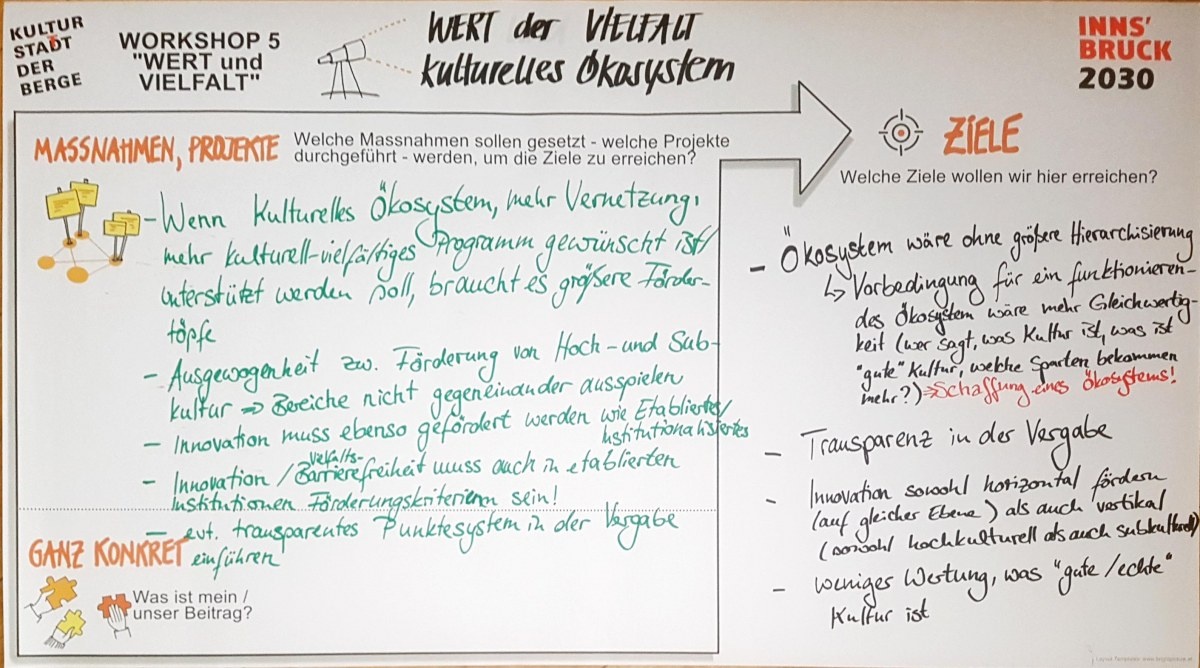 KULTUR
STADT
DER
BERGE
WORKSHOP 5
"WERT und
VIELFALT"
WERT der VIELFALT
kulturelles Ökosystem
INNS'
BRUCK
2030
MASSNAHMEN, PROJEKTE
Welche Massnahmen sollen gesetzt - welche Projekte
durchgeführt - werden, um die Ziele zu erreichen?
- Wenn kulturelles Ökosystem, mehr Vernetzung,
mehr kulturell-vielfältiges Programm gewünscht ist/
unterstützt werden soll, braucht es größere Förder-
töpfe
- Ausgewogenheit zw. Förderung von Hoch- und Sub-
kultur => Bereiche nicht gegeneinander ausspielen
- Innovation muss ebenso gefördert werden wie Etabliertes/
Institutionalisiertes
- Innovation / Vielfalts-
Barrierefreiheit muss auch in etablierten
Institutionen Förderungskriterien sein!
- evt. transparentes Punktesystem in der Vergabe
einführen
GANZ KONKRET
Was ist mein /
unser Beitrag?
ZIELE
Welche Ziele wollen wir hier erreichen?
- Ökosystem wäre ohne größere Hierarchisierung
↳ Vorbedingung für ein funktionieren-
des Ökosystem wäre mehr Gleichwertig-
keit (wer sagt, was Kultur ist, was ist
"gute" Kultur, welche Sparten bekommen
mehr?) => Schaffung eines Ökosystems!
- Transparenz in der Vergabe
- Innovation sowohl horizontal fördern
(auf gleicher Ebene) als auch vertikal
(sowohl hochkulturell als auch subkulturell)
- weniger Wertung, was "gute/echte"
Kultur ist